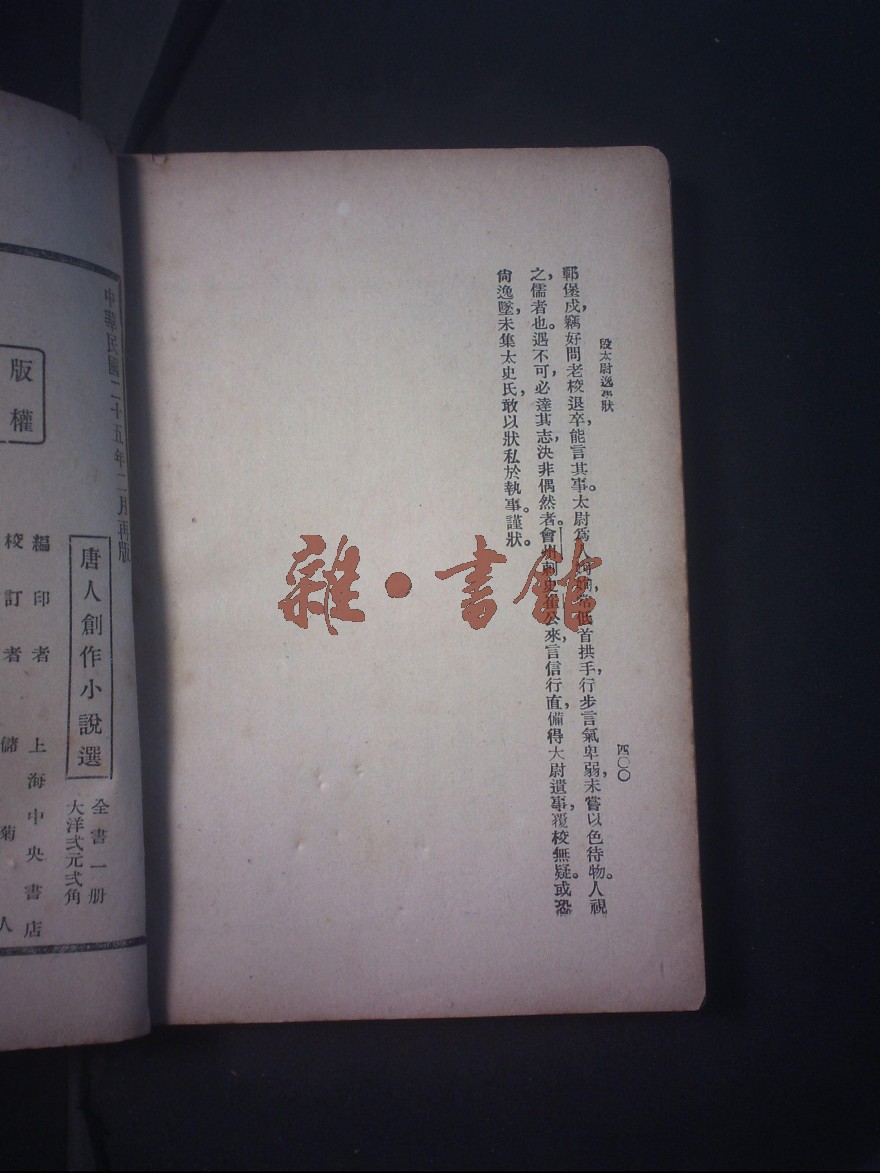 段太尉逸事狀
四〇〇
鄠堡戍，竊好問老校退卒，能言其事。太尉爲人
常低首拱手行步，言氣卑弱，未嘗以色待物。人視
之，儒者也。遇不可，必達其志，決非偶然者。會
公來，言信行直，備得大尉遺事，覆校無疑。或恐
尙逸墜，未集太史氏，敢以狀私於執事。謹狀。
雜·書館
中華民國二十五年二月再版
唐人創作小說選
全書一册
大洋弍元弍角
版權
編印者 上海中央書店
校訂者 儲菊人